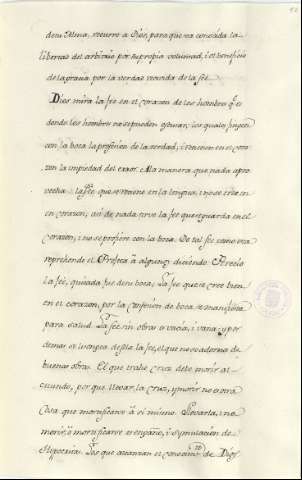 de su Alma, recurre a Dios, para que no conceda la
libertad del arbitrio por su propia voluntad, i el beneficio
de la gracia por la verdad recivida de la fee.
Dios mira la fee en el corazon de los hombres q̃ es
donde los hombres no se pueden escusar; los quales fingen
con la boca la profesion de la verdad, i tienen en el co-
razon la impiedad del error. A la manera que nada apro-
vecha la fee que se retiene en la lengua, i no se cree en
en corazon; asi de nada sirve la fee que se guarda en el
Corazon, i no se profiere con la boca. De tal fee como esa
reprehende el Profeta à algunos diciendo: Perecio
la fee, quitada fue de su boca; La fee que se cree bien
en el corazon, por la confesion de boca se manifiesta
para salud. La fee sin obras es vacia, i vana; y por
demas se lisongea de sola la fee, el que no se adorna de
buenas obras. El que trahe Cruz debe morir al
mundo, por que llevar la cruz, y morir no es otra
Cosa que mortificarse à si mismo. Llevarla, i no
morir, ò mortificarse es engaño, i simulacion de
Hipocresia. Los que alcanzan el conocim.to de Dios